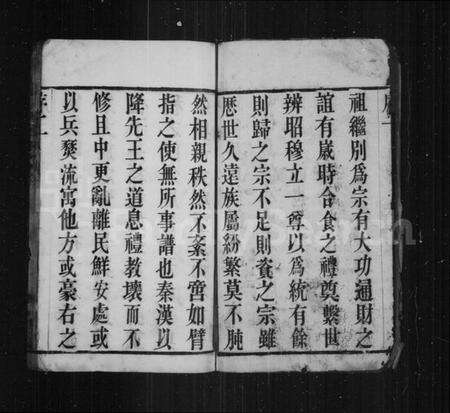 祖繼別爲宗有大功通財之
誼有嵗時合食之禮奠繫世
辨昭穆立一尊以爲統有餘
則歸之宗不足則資之宗雖
歷世久遠族屬紛繁莫不肫
然相親秩然不紊不啻如臂
指之使無所事譜也秦漢以
降先王之道息禮教壞而不
修且中更亂離民鮮安處或
以兵燹流寓他方或豪右之